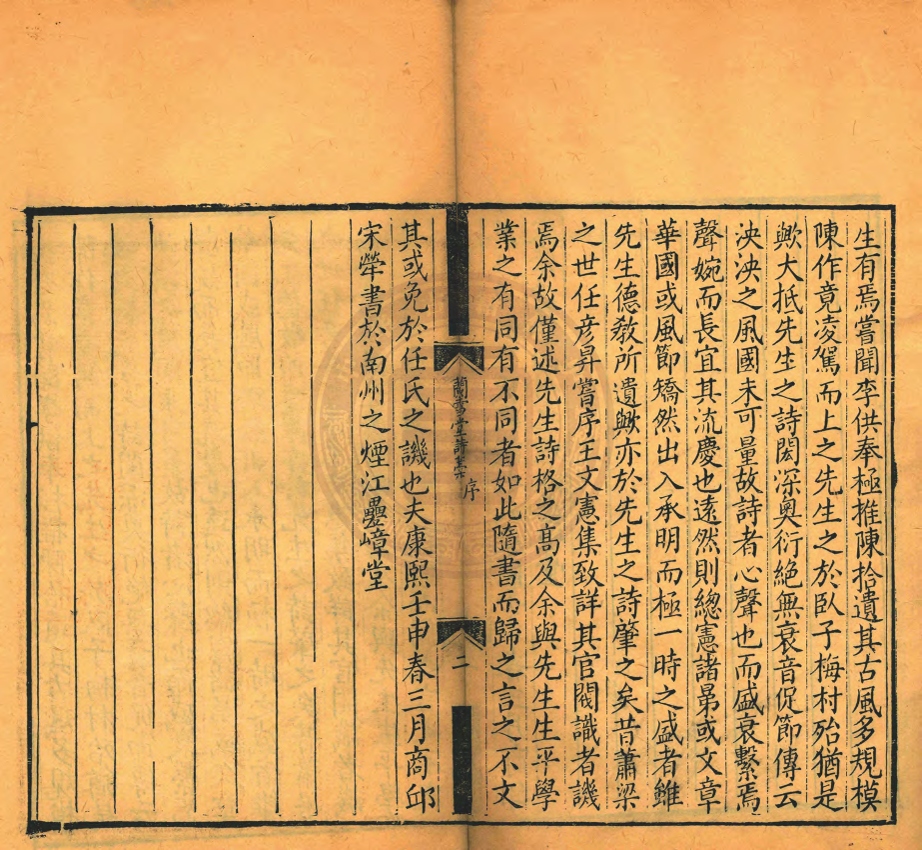 生有焉嘗聞李供奉極推陳拾遺其古風多規模
陳作竟凌駕而上之先生之於臥子梅村殆猶是
歟大抵先生之詩閎深奧衍絕無衰音促節傳云
泱泱之風國未可量故詩者心聲也而盛衰繫焉
聲婉而長宜其流慶也遠然則總憲諸昴或文章
華國或風節矯然出入承明而極一時之盛者雖
先生德教所遺歟亦於先生之詩肇之矣昔蕭梁
之世任彥昇嘗序王文憲集致詳其官閥識者譏
焉余故僅述先生詩格之高及余與先生生平學
業之有同有不同者如此隨書而歸之言之不文
序
二
其或免於任氏之譏也夫康熙壬申春三月商邱
宋犖書於南州之煙江疊嶂堂